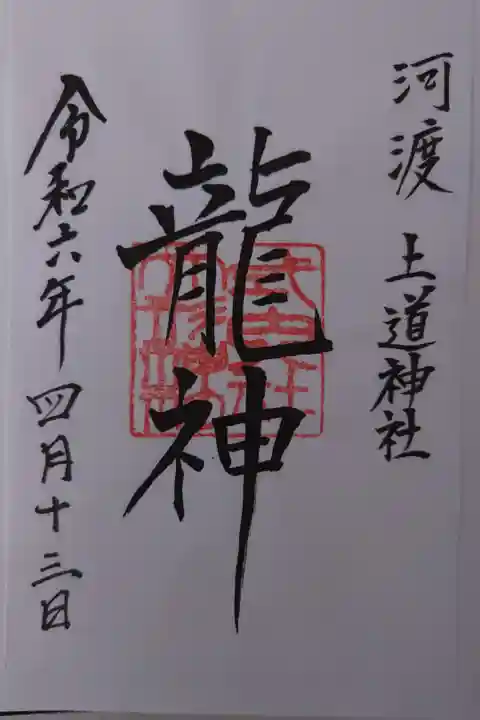 河渡 土道神社
龍神
令和六年四月十三日